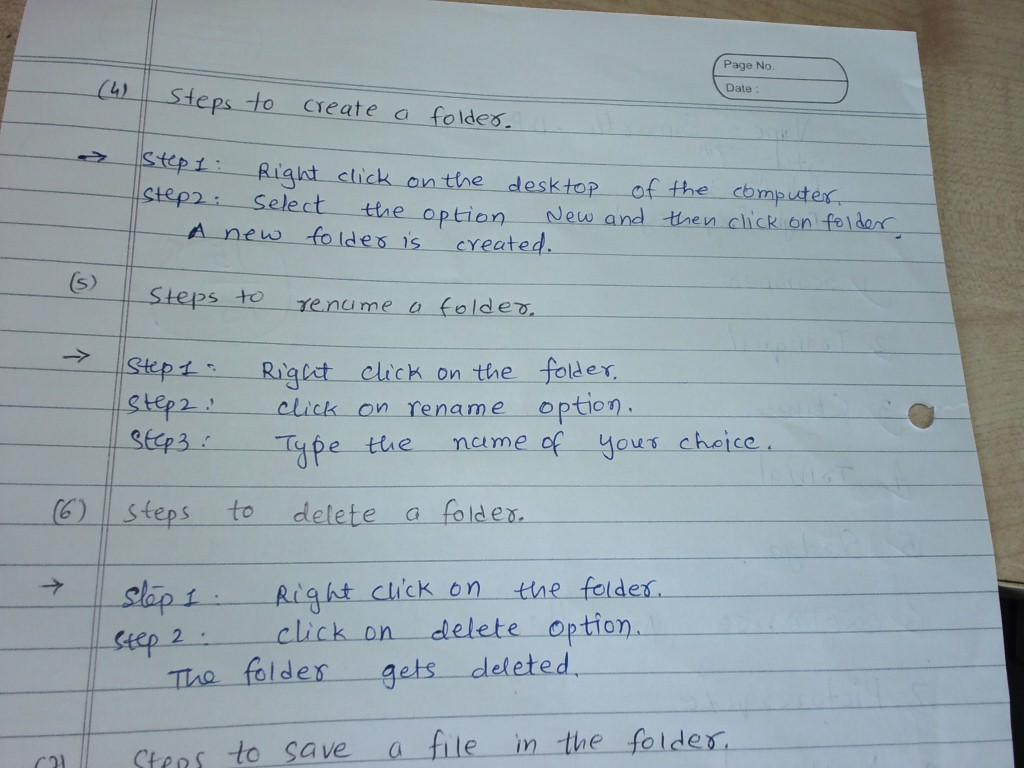 Page No.
Date :
(4) Steps to create a folder.
→ Step1: Right click on the desktop of the computer.
Step2: Select the option New and then click on folder.
A new folder is created.
(5) Steps to rename a folder.
→ Step1: Right click on the folder.
Step2: click on rename option.
Step3: Type the name of your choice.
(6) Steps to delete a folder.
→ Step 1: Right click on the folder.
Step 2: click on delete option.
The folder gets deleted.
(7) Steps to save a file in the folder.